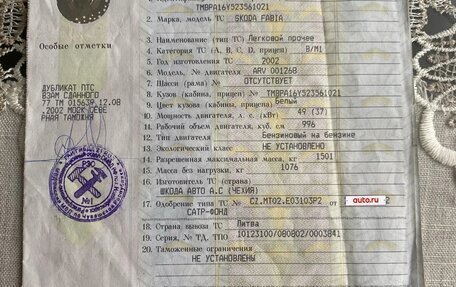 TMBPA16Y523561021
2. Марка, модель ТС SKODA FABIA
3. Наименование (тип ТС) Легковой прочее
4. Категория ТС (A, B, C, D, прицеп) B/M1
5. Год изготовления ТС 2002
6. Модель, № двигателя ARV 001268
7. Шасси (рама) № ОТСУТСТВУЕТ
8. Кузов (кабина, прицеп) № TMBPA16Y523561021
9. Цвет кузова (кабины, прицепа) Белый
10. Мощность двигателя, л. с. (кВт) 49 (37)
11. Рабочий объем двигателя, куб. см 996
12. Тип двигателя Бензиновый на бензине
13. Экологический класс НЕ УСТАНОВЛЕНО
14. Разрешенная максимальная масса, кг 1501
15. Масса без нагрузки, кг 1076
16. Изготовитель ТС (страна)
ШКОДА АВТО А.С (ЧЕХИЯ)
17. Одобрение типа ТС № CZ.MT02.E03103P2 от
auto.ru
2
САТР-ФОНД
18. Страна вывоза ТС Литва
19. Серия, № ТД, ТПО 10123100/080802/0003841
20. Таможенные ограничения
НЕ УСТАНОВЛЕНЫ
Особые отметки
ДУБЛИКАТ ПТС
ВЗАМ СДАННОГО
77 ТМ 015639 12.08
РНАЯ ТАМОЖНЯ
РЭО
№1